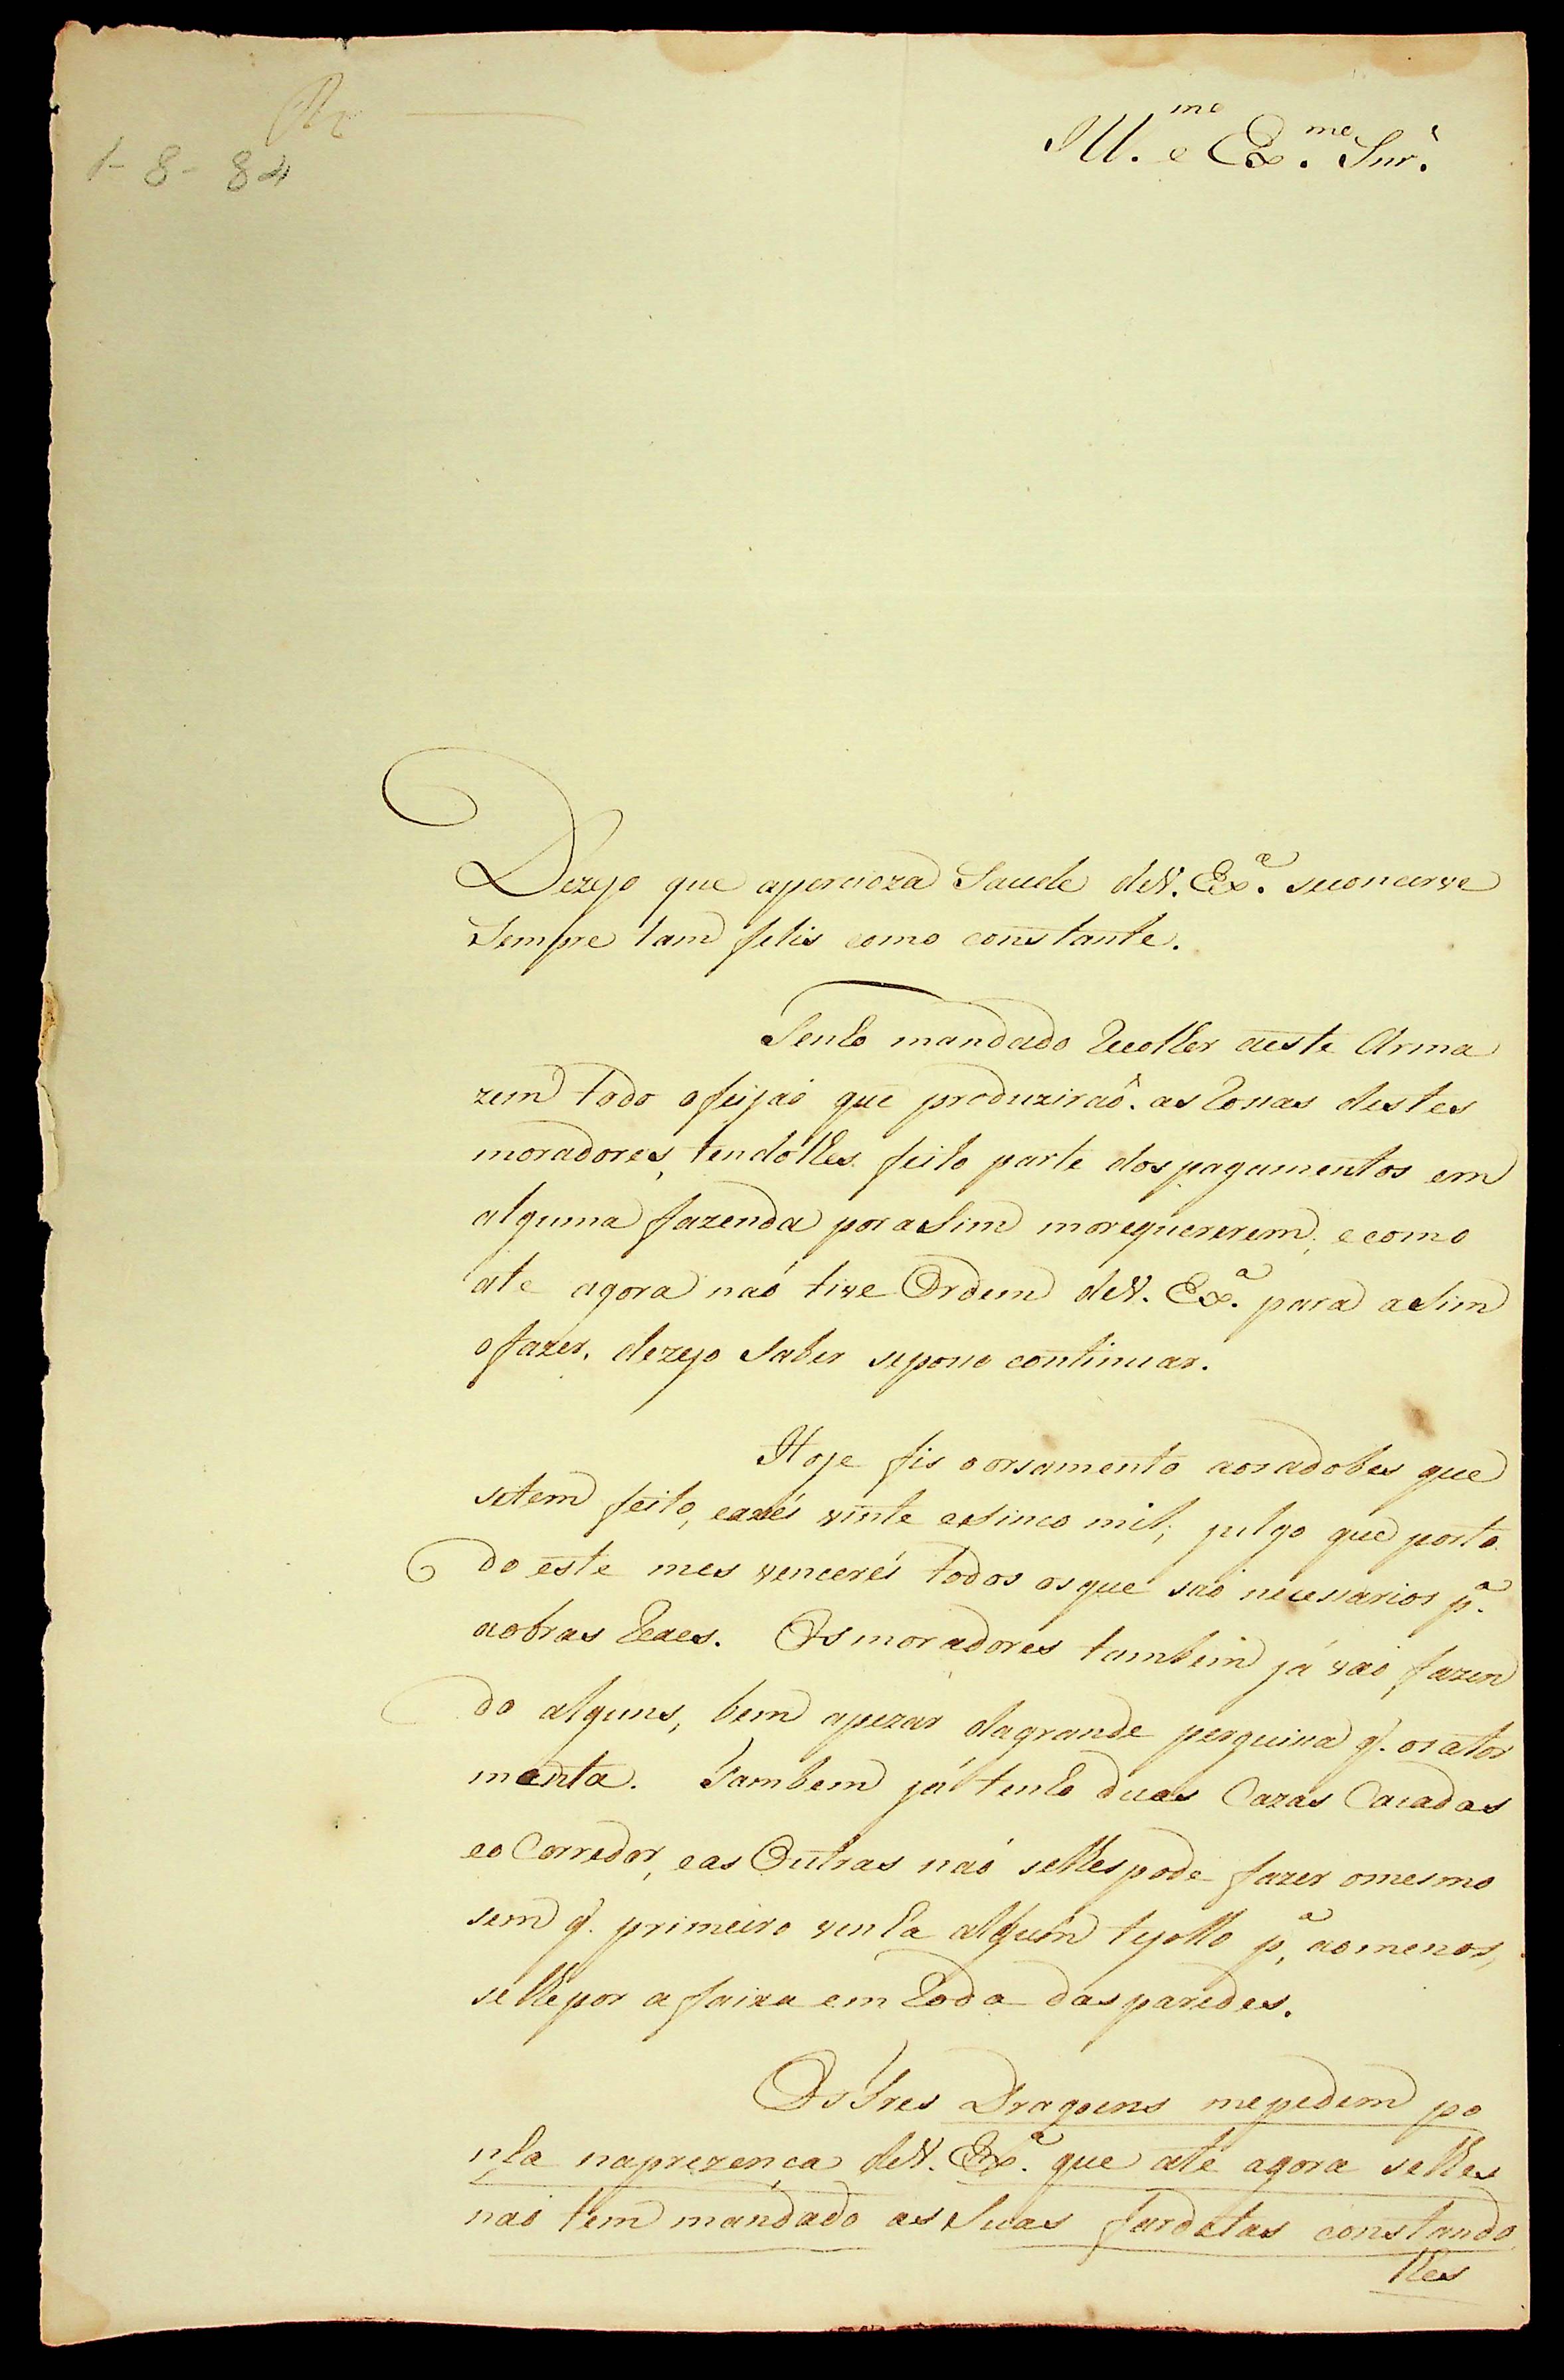 1-8-84
Ill.mo e Ex.mo Snr.
Dezejo que apercioza Saude deV. Ex.a seconcerve
Sempre tam felis como constante.
Tenho mandado Recolher aeste Arma
zem todo ofeijaõ que produziraõ. as Rossas destes
moradores, tendolhes feito parte dospagamentos em
alguma fazenda por aSim morequererem; ecomo
ate agora naõ tive Ordem deV. Ex.a para aSim
ofazer, dezejo Saber seposso continuar.
Hoje fis oorsamento aosadobes que
setem feito, vinte eSinco mil; julgo que porto
do este mes vencerei todos osque saõ necessarios p.a
aobras Reaes. Osmoradores tambem já vaõ fazen
do alguns, bem apezar dagrande perguissa q. osator
menta. Tambem já tenho duas Cazas Caiadas
eo Corredor, eas Outras naõ selhespode fazer omesmo
sem q. primeiro venha algum tijollo p.a aomenos,
selhepor afaixa em Roda dasparedes.
Os tres Dragoens mepedem po
nha naprezença deV. Ex.a que ate agora selhes
naõ tem mandado as Suas fardetas constando
lhes